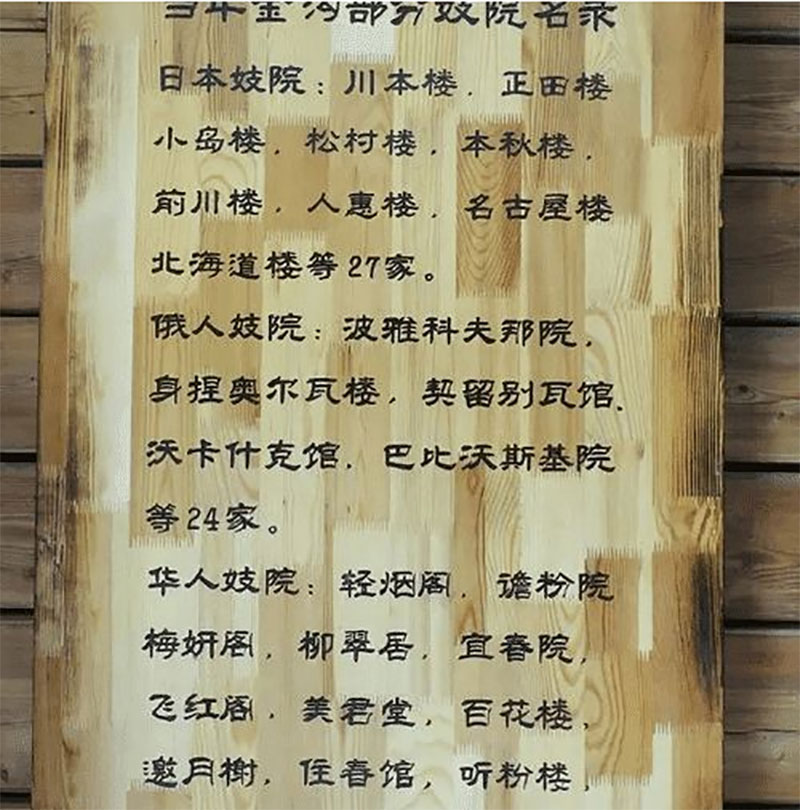 当年金沟部分妓院名录
日本妓院：川本楼．正田楼
小岛楼．松村楼．本秋楼．
前川楼．人惠楼．名古屋楼
北海道楼等27家。
俄人妓院：波雅科夫那院．
身捏奥尔瓦楼，契留别瓦馆．
沃卡什克馆．巴比沃斯基院
等24家。
华人妓院：轻烟阁．谵粉院
梅妍阁．柳翠居．宜春院，
飞红阁．美君堂，百花楼，
邀月榭，住春馆，听粉楼，